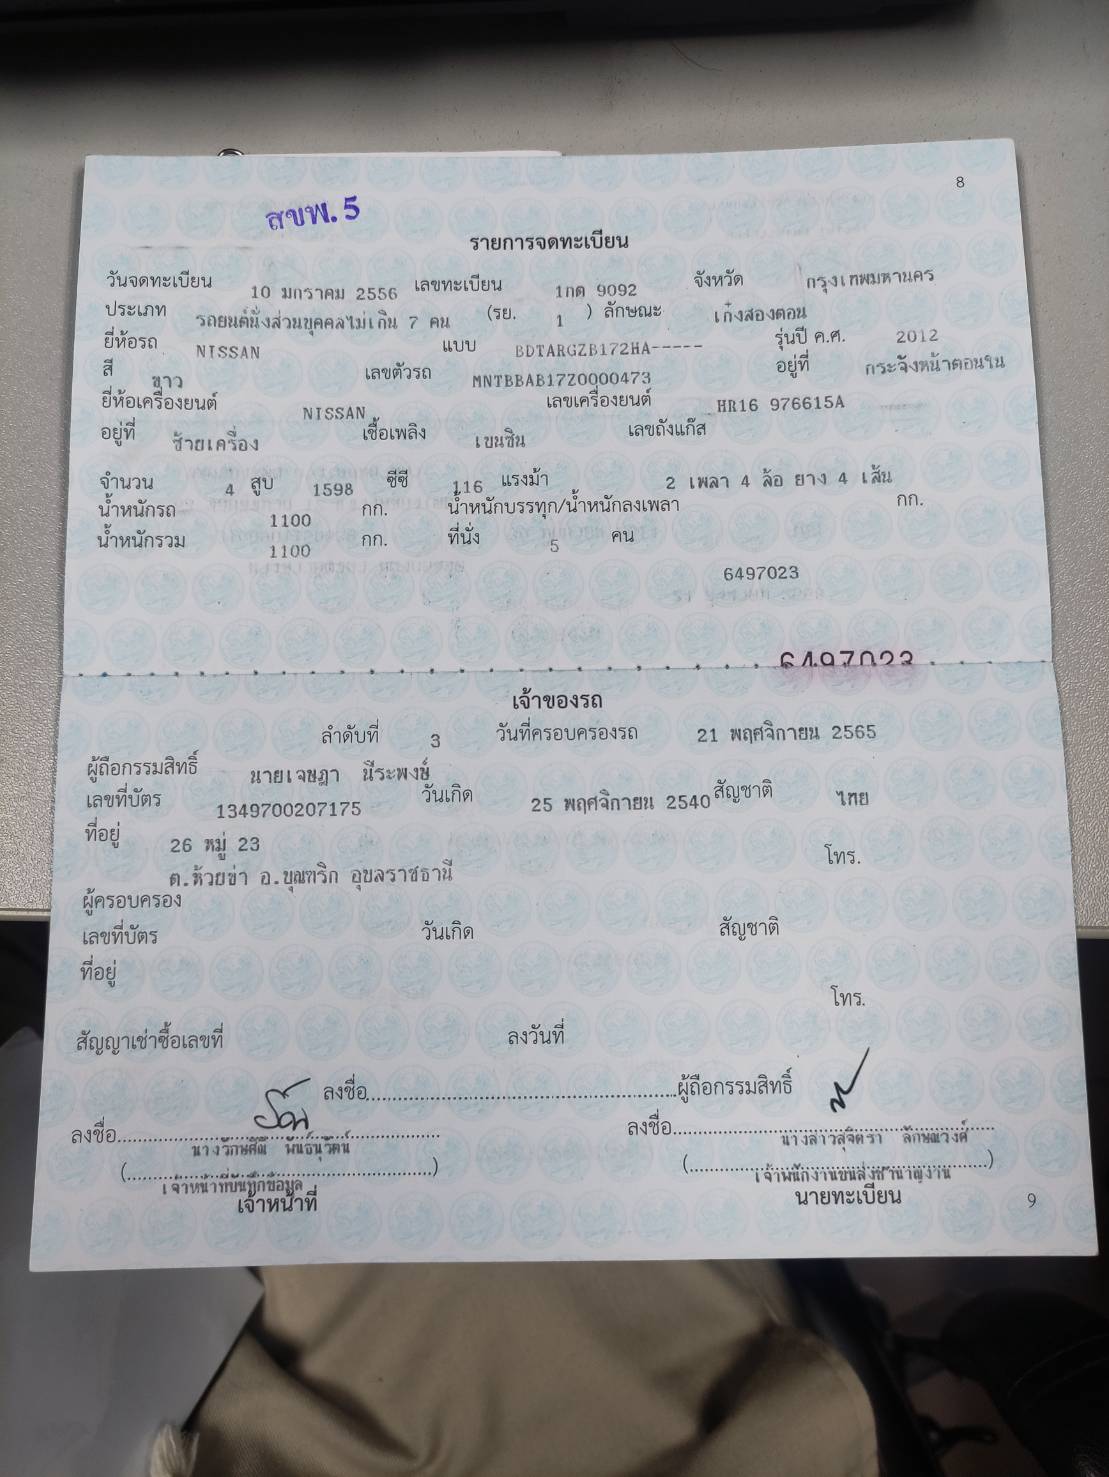 8
สขพ. 5
รายการจดทะเบียน
วันจดทะเบียน 10 มกราคม 2556 เลขทะเบียน 1กต 9092 จังหวัด กรุงเทพมหานคร
ประเภท รถยนต์นั่งส่วนบุคคลไม่เกิน 7 คน (รย. 1 ) ลักษณะ เก๋งสองตอน
ยี่ห้อรถ NISSAN แบบ BDTARGZB172HA----- รุ่นปี ค.ศ. 2012
สี ขาว เลขตัวรถ MNTBBAB17Z0000473 อยู่ที่ กระจังหน้าตอนใน
ยี่ห้อเครื่องยนต์ NISSAN เลขเครื่องยนต์ HR16 976615A
อยู่ที่ ซ้ายเครื่อง เชื้อเพลิง เบนซิน เลขถังแก๊ส
จำนวน 4 สูบ 1598 ซีซี 116 แรงม้า 2 เพลา 4 ล้อ ยาง 4 เส้น
น้ำหนักรถ 1100 กก. น้ำหนักบรรทุก/น้ำหนักลงเพลา กก.
น้ำหนักรวม 1100 กก. ที่นั่ง 5 คน
6497023
6497023
เจ้าของรถ
ลำดับที่ 3 วันที่ครอบครองรถ 21 พฤศจิกายน 2565
ผู้ถือกรรมสิทธิ์ นายเจษฎา นีระพงษ์
เลขที่บัตร 1349700207175 วันเกิด 25 พฤศจิกายน 2540 สัญชาติ ไทย
ที่อยู่ 26 หมู่ 23
โทร.
ต.ห้วยข่า อ.บุณฑริก อุบลราชธานี
ผู้ครอบครอง
เลขที่บัตร วันเกิด สัญชาติ
ที่อยู่
โทร.
สัญญาเช่าซื้อเลขที่ ลงวันที่
ลงชื่อ ผู้ถือกรรมสิทธิ์
ลงชื่อ ลงชื่อ
พันธ์นุวัตน์ นางสาวสุจิตรา ลักษณวงศ์
เจ้าหน้าที่บันทึกข้อมูล เจ้าพนักงานขนส่งชำนาญงาน
เจ้าหน้าที่ นายทะเบียน
9